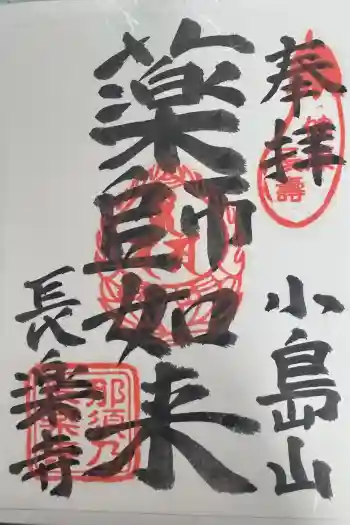 奉拝
小島山
薬師如来
長楽寺
那須乃